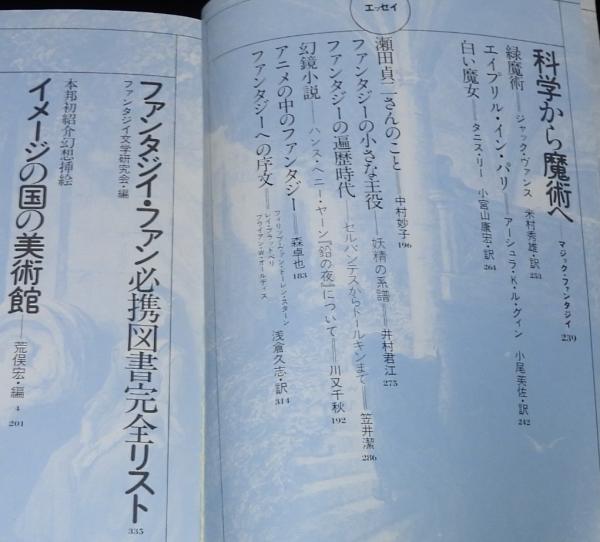 科学から魔術へ マジック・ファンタジイ 239
緑魔術——ジャック・ヴァンス 米村秀雄・訳 253
エイプリル・イン・パリ——アーシュラ・K・ル・グィン 小尾芙佐・訳 242
白い魔女——タニス・リー 小宮山康宏・訳 264
エッセイ
瀬田貞二さんのこと——中村妙子 196
ファンタジーの小さな主役——妖精の系譜——井村君江 275
ファンタジーの遍歴時代——セルバンテスからトールキンまで——笠井潔 286
幻鏡小説——ハンス・ヘニー・ヤーン『鉛の夜』について——川又千秋 192
アニメの中のファンタジー——森卓也 183
ファンタジーへの序文——フィリップ・ヴァン・ドーレン・スターン
レイ・ブラッドベリ
ブライアン・W・オールディス
浅倉久志・訳 314
ファンタジイ・ファン必携図書完全リスト 335
ファンタジイ文学研究会・編
本邦初紹介幻想挿絵
イメージの国の美術館——荒俣宏・編 4 201